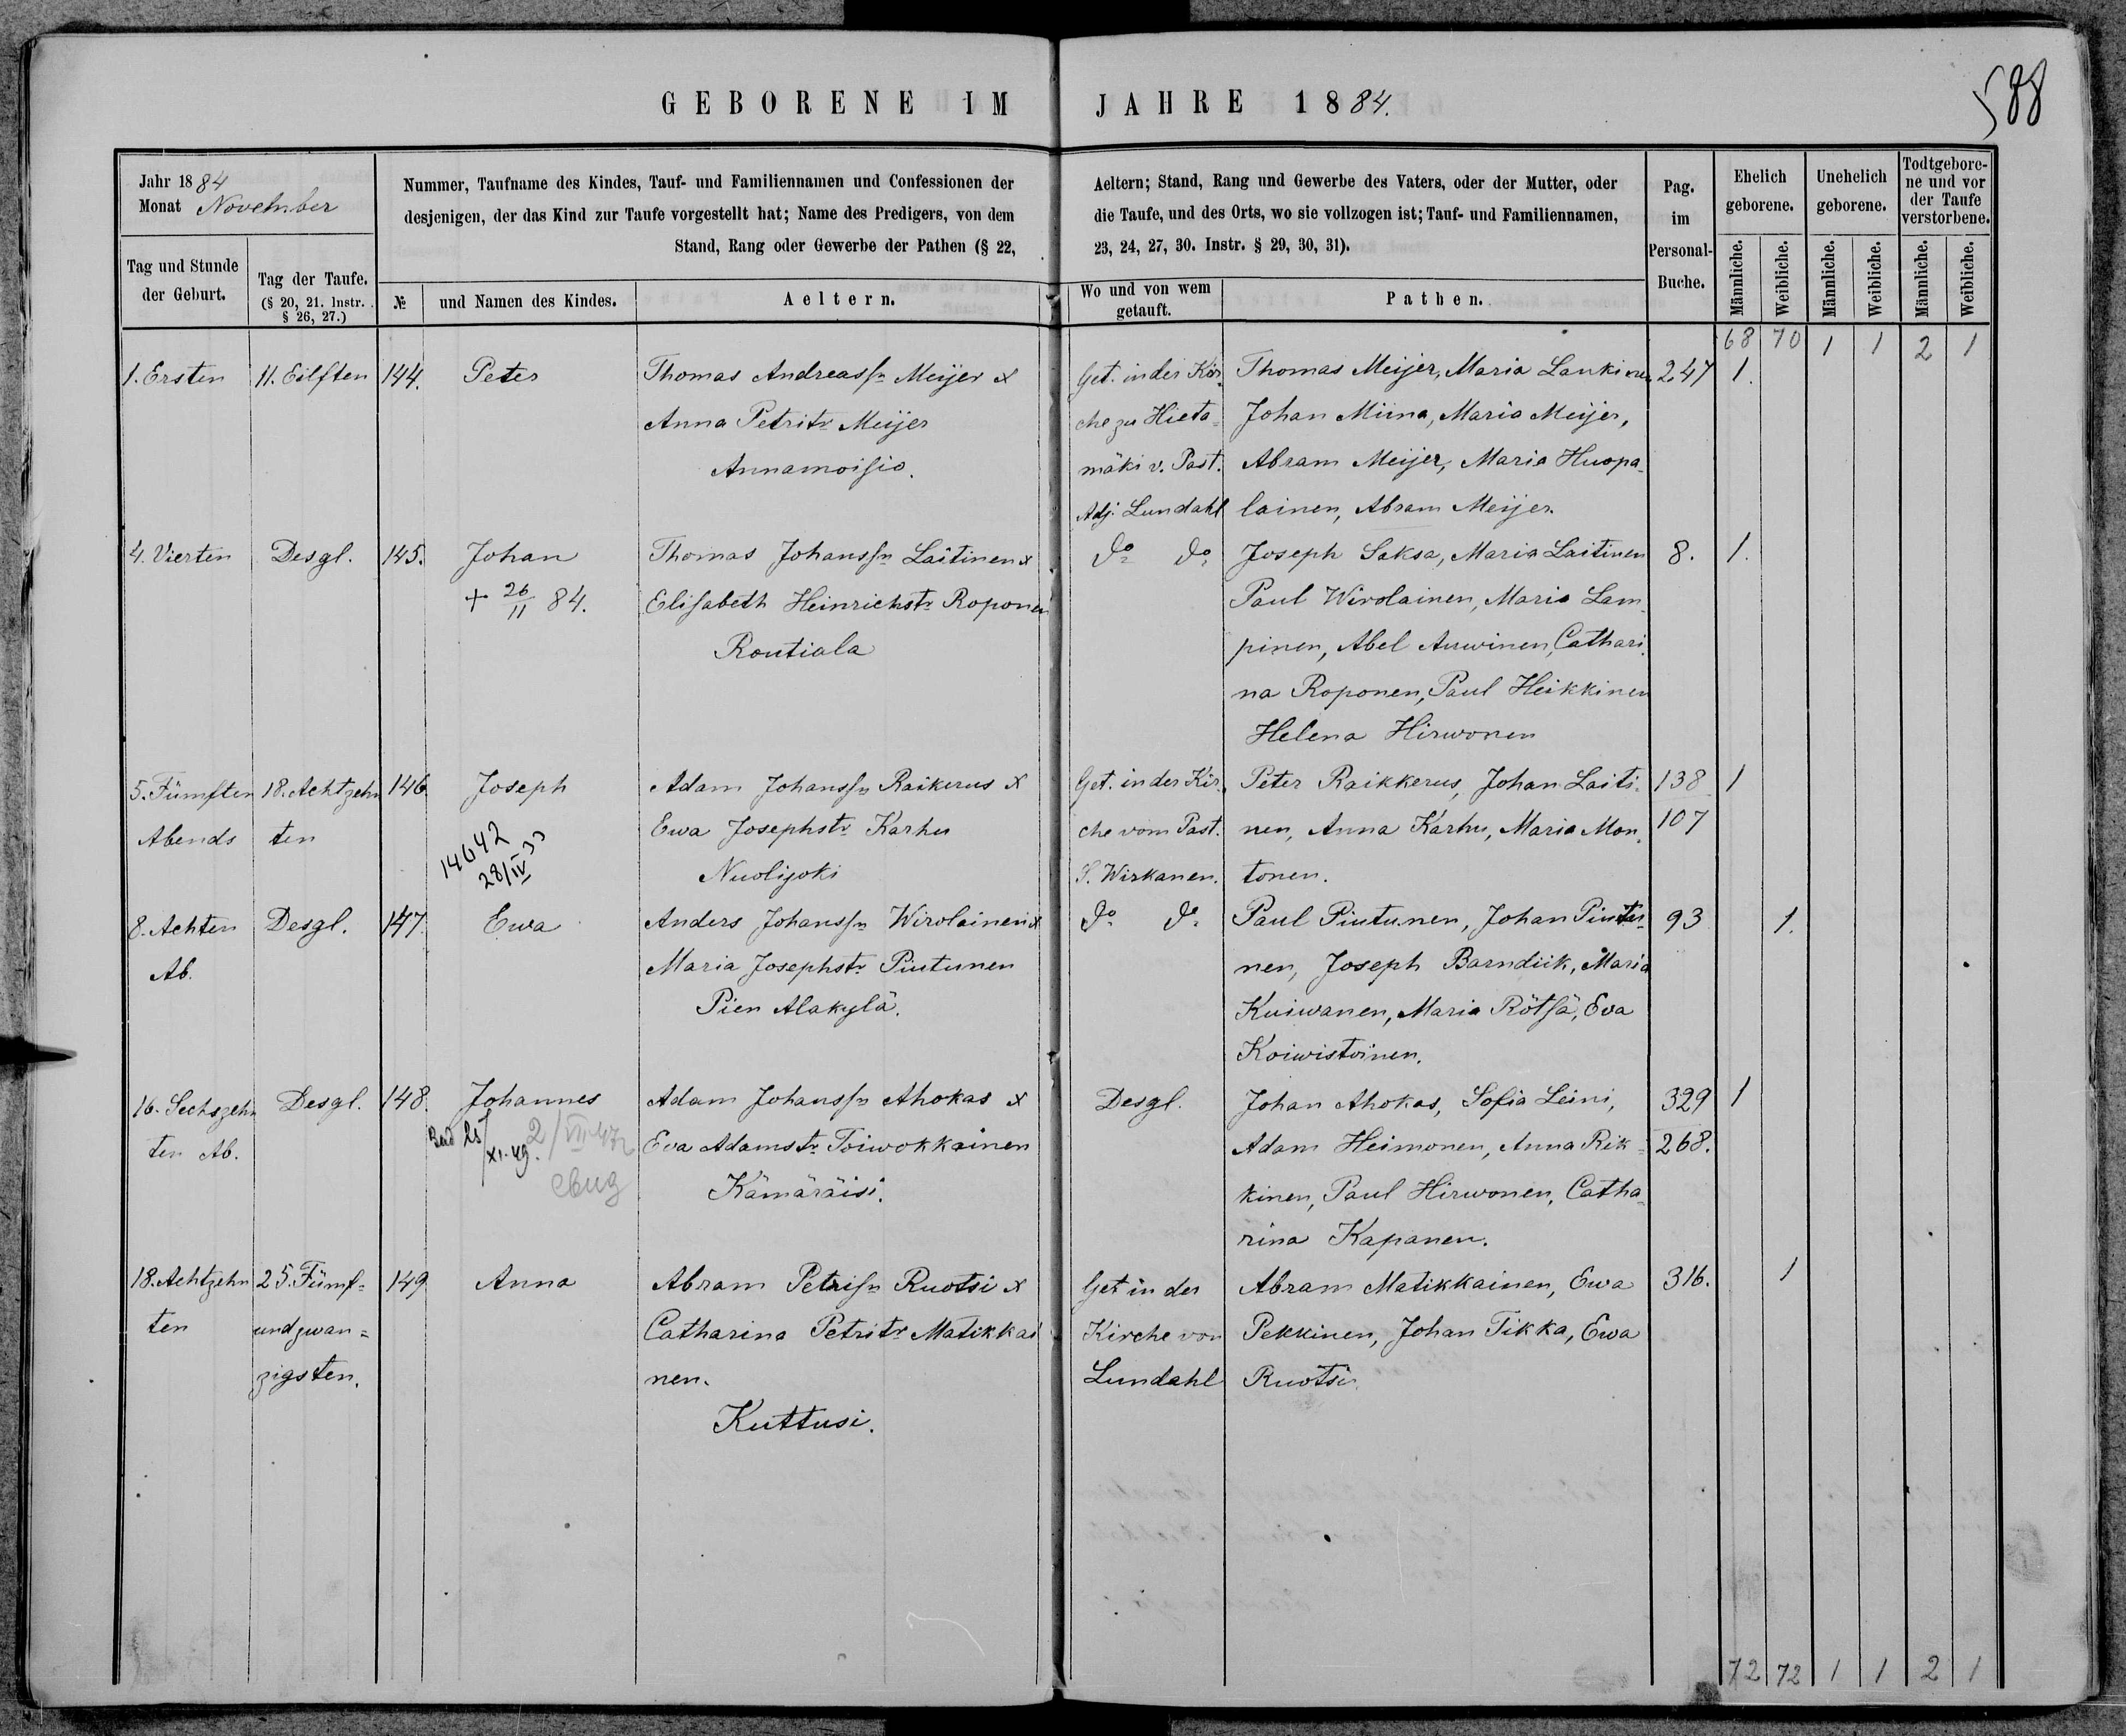 GEBORENE IM JAHRE 1884.
588
Jahr 1884
Monat November
Nummer, Taufname des Kindes, Tauf- und Familiennamen und Confessionen der
desjenigen, der das Kind zur Taufe vorgestellt hat; Name des Predigers, von dem
Stand, Rang oder Gewerbe der Pathen (§ 22,
Aeltern; Stand, Rang und Gewerbe des Vaters, oder der Mutter, oder
die Taufe, und des Orts, wo sie vollzogen ist; Tauf- und Familiennamen,
23, 24, 27, 30. Instr. § 29, 30, 31).
Pag.
im
Personal-
Buche.
Ehelich
geborene.
Unehelich
geborene.
Todtgebore-
ne und vor
der Taufe
verstorbene.
Männliche. Weibliche. Männliche. Weibliche. Männliche. Weibliche.
Tag und Stunde
der Geburt.
Tag der Taufe.
(§ 20, 21. Instr.
§ 26, 27.)
№ und Namen des Kindes.
Aeltern.
Wo und von wem
getauft.
Pathen.
68 70 1 1 2 1
1. Ersten 11. Eilften 144. Peter
Thomas Andreasſn Meijer x
Anna Petritr Meijer
Annamoiſio.
Get. in der Kir-
che zu Hieta-
mäki v. Past.
Adj. Lundahl
Thomas Meijer, Maria Lankinen
Johan Miina, Maria Meijer,
Abram Meijer, Maria Huopa-
lainen, Abram Meijer.
247 1.
4. Vierten Desgl. 145. Johan
+ 26/11 84.
Thomas Johansſn Laitinen x
Eliſabeth Heinrichstr Roponen
Rontiala
do do
Joseph Saksa, Maria Laitinen
Paul Wirolainen, Maria Lam-
pinen, Abel Auwinen, Cathari-
na Roponen, Paul Heikkinen
Helena Hirwonen
8. 1.
5. Fümften 18. Achtzehn 146. Joseph
Abends ten
14642
28/IV 33
Adam Johansſn Raikerus x
Ewa Josephstr Karhu
Nuolijoki
Get. in der Kir-
che vom Past.
S. Wirkanen.
Peter Raikkerus, Johan Laiti-
nen, Anna Karhu, Maria Mon-
tonen.
138 1
107
8. Achten Desgl. 147. Ewa
Ab.
Anders Johansſn Wirolainen x
Maria Josephstr Piutunen
Pien Alakylä.
do do
Paul Piutunen, Johan Piutu-
nen, Joseph Barndiik, Maria
Kuiwanen, Maria Rötſä, Eva
Koiwistoinen.
93 1.
16. Sechszehn Desgl. 148. Johannes
ten Ab.
25/XI.49. 2/VII 47
свид
Adam Johansſn Ahokas x
Eva Adamstr Toiwokkainen
Kämäräisi.
Desgl.
Johan Ahokas, Sofia Leini,
Adam Heimonen, Anna Rik-
kinen, Paul Hirwonen, Catha-
rina Kapanen.
329 1
268.
18. Achtzehn 25. Fümf- 149. Anna
ten und zwan-
zigsten.
Abram Petriſn Ruotsi x
Catharina Petritr Matikkai
nen.
Kuttusi.
Get in der
Kirche von
Lundahl
Abram Matikkainen, Ewa
Pekkinen, Johan Tikka, Ewa
Ruotsi.
316. 1
72 72 1 1 2 1